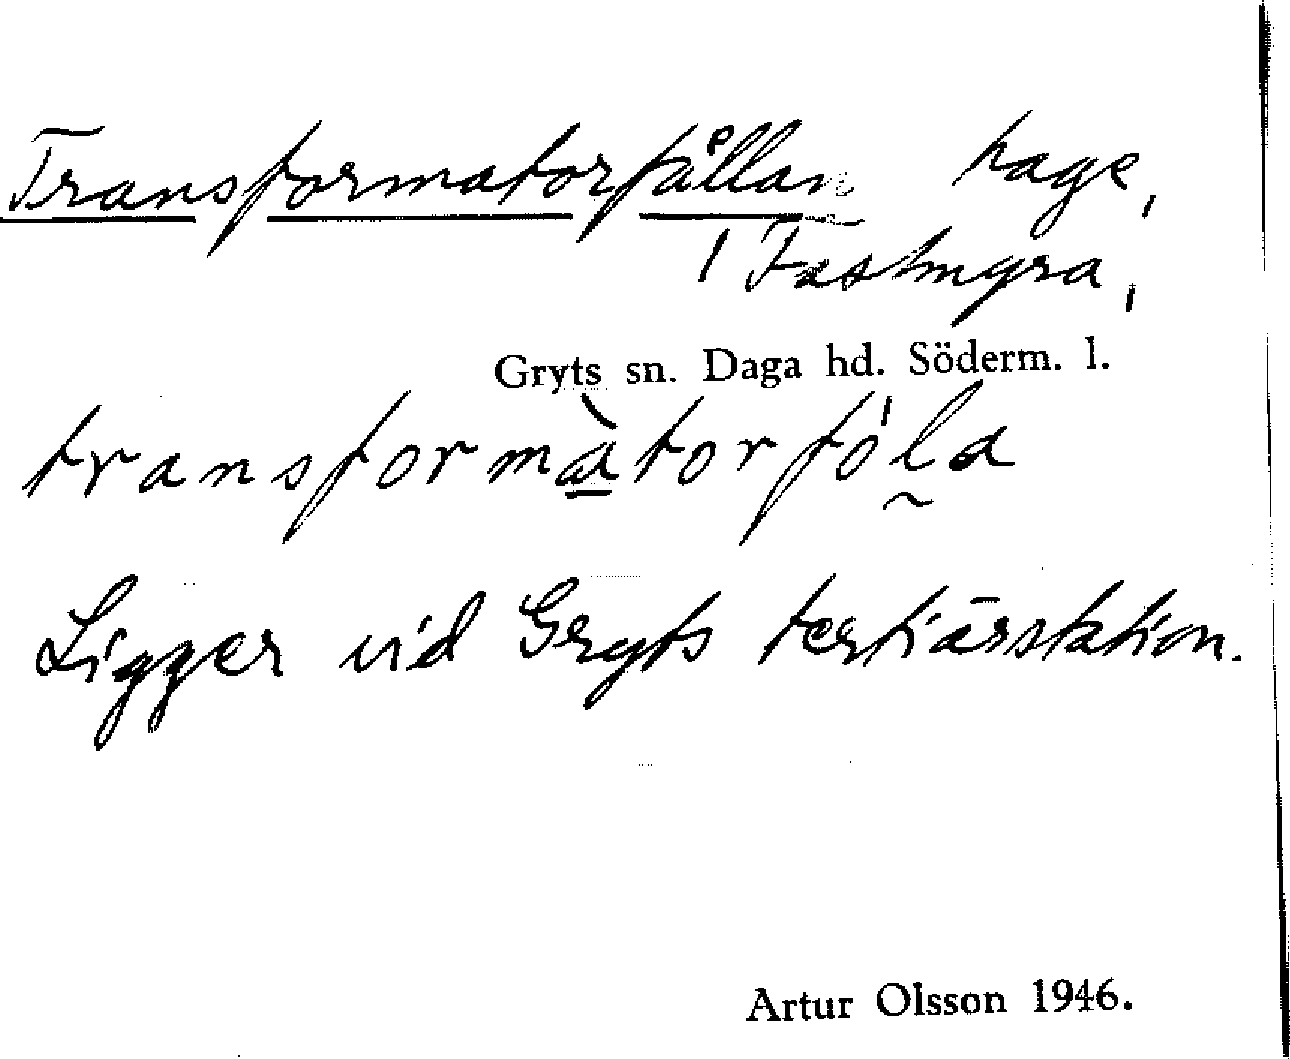 Transformatorfållan hage,
1 Fastmyra,
Gryts sn. Daga hd. Söderm. l.
transformàtorfóla
Ligger vid Gryts tertiärstation.
Artur Olsson 1946.